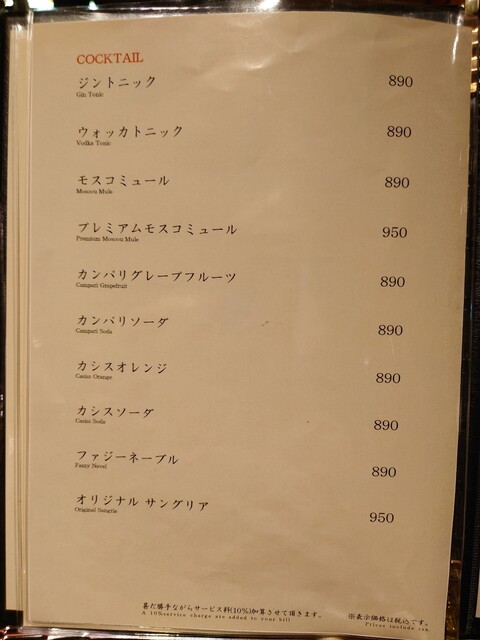 COCKTAIL
ジントニック 890
Gin Tonic
ウォッカトニック 890
Vodka Tonic
モスコミュール 890
Moscou Mule
プレミアムモスコミュール 950
Premium Moscou Mule
カンパリグレープフルーツ 890
Campari Grapefruit
カンパリソーダ 890
Campari Soda
カシスオレンジ 890
Cassis Orange
カシスソーダ 890
Cassis Soda
ファジーネーブル 890
Fuzzy Navel
オリジナル サングリア 950
Original Sangria
甚だ勝手ながらサービス料(10%)加算させて頂きます。 ※表示価格は税込です。
A 10%service charge are added to your bill Prices include tax